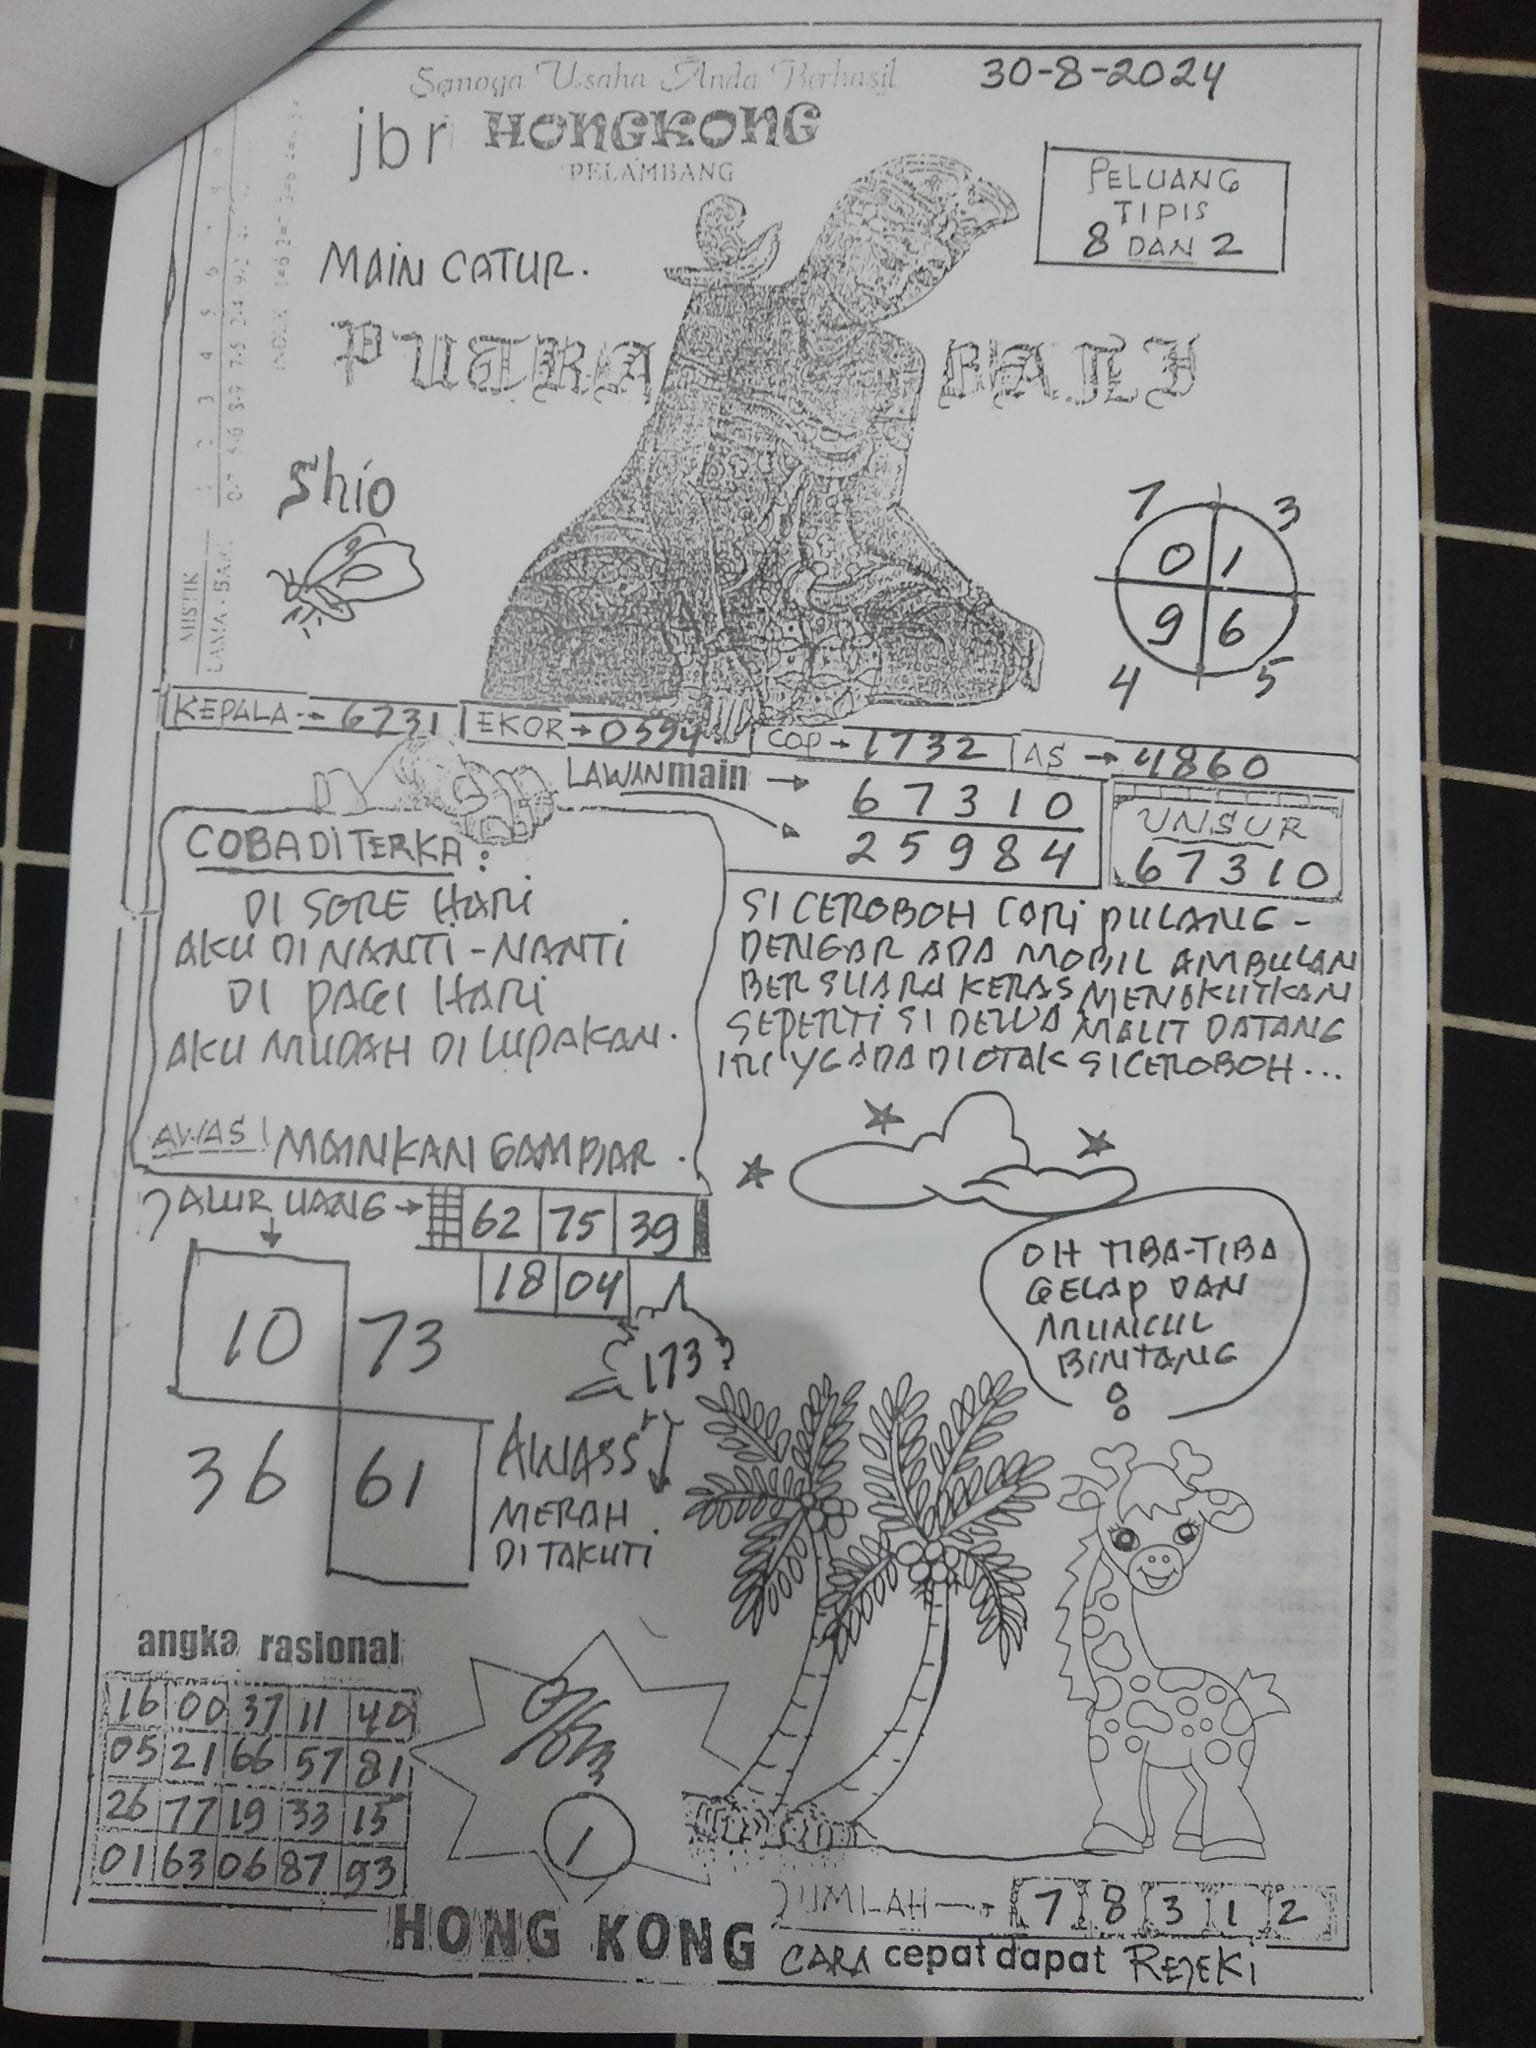 Semoga Usaha Anda Berhasil
30-8-2024
jbr HONGKONG
PELAMBANG
PELUANG
TIPIS
8 DAN 2
MAIN CATUR.
PUTRA BALI
Shio
7 3
0 1
9 6
4 5
MISTIK
LAMA - BARU
INDEX
KEPALA → 6731 EKOR → 0594 COP → 1732 AS → 4860
LAWAN main → 67310
25984
UNSUR
67310
COBA DI TERKA:
DI SORE HARI
AKU DI NANTI-NANTI
DI PAGI HARI
AKU MUDAH DI LUPAKAN.
AWAS! MAINKAN GAMBAR.
SI CEROBOH LARI PULANG-
DENGAR ADA MOBIL AMBULAN
BERSUARA KERAS MENAKUTKAN
SEPERTI SI DEWA MAUT DATANG
ITU YG ADA DI OTAK SI CEROBOH...
JALUR UANG → 62 75 39
18 04
10 73
36 61
173
AWASS
MERAH
DI TAKUTI
OH TIBA-TIBA
GELAP DAN
MUNCUL
BINTANG
angka rasional
16 00 37 11 40
05 21 66 57 81
26 77 19 33 15
01 63 06 87 93
1
JUMLAH → 7 8 3 1 2
HONG KONG CARA cepat dapat REJEKI